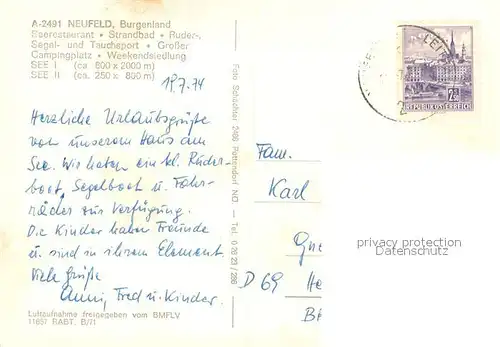 A-2491 NEUFELD, Burgenland
Seerestaurant • Strandbad • Ruder-,
Segel- und Tauchsport • Großer
Campingplatz • Weekendsiedlung
SEE I (ca. 800 x 2000 m)
SEE II (ca. 250 x 800 m)
19.7.74
Herzliche Urlaubsgrüße
von unserem Haus am
See. Wir haben ein kl. Ruder-
boot, Segelboot u. Fahr-
räder zur Verfügung.
Die Kinder haben Freunde
u. sind in ihrem Element.
Viele Grüße
Anni, Fred u. Kinder.
Luftaufnahme freigegeben vom BMFLV
RABT. B/71
Foto Pottendorf NÖ.
REPUBLIK ÖSTERREICH
2
Fam.
Karl
D 69
privacy protection
Datenschutz